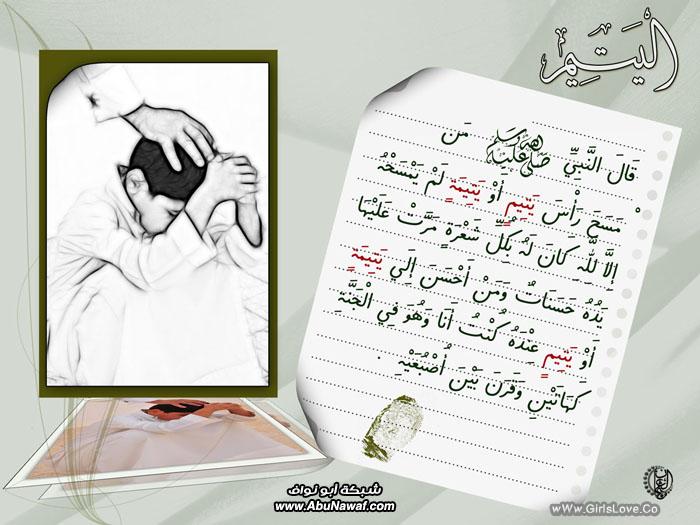 اليَتِيمْ
قَالَ النَّبِيِّ صَلَّى اللهُ عَلَيْهِ وَسَلَّم مَن
مَسَحَ رَأْسَ يَتِيمٍ أَوْ يَتِيمَةٍ لَمْ يَمْسَحْهُ
إِلَّا لِلَّهِ كَانَ لَهُ بِكُلِّ شَعْرَةٍ مَرَّتْ عَلَيْهَا
يَدُهُ حَسَنَاتٌ وَمَنْ أَحْسَنَ إِلَي يَتِيمَةٍ
أَوْ يَتِيمٍ عِنْدَهُ كُنْتُ أَنَا وَهُوَ فِي الْجَنَّةِ
كَهَاتَيْنِ وَقَرَنَ بَيْنَ أُصْبُعَيْهِ .
شبكة أبو نواف
www.AbuNawaf.com
WWw.GirlsLove.Co